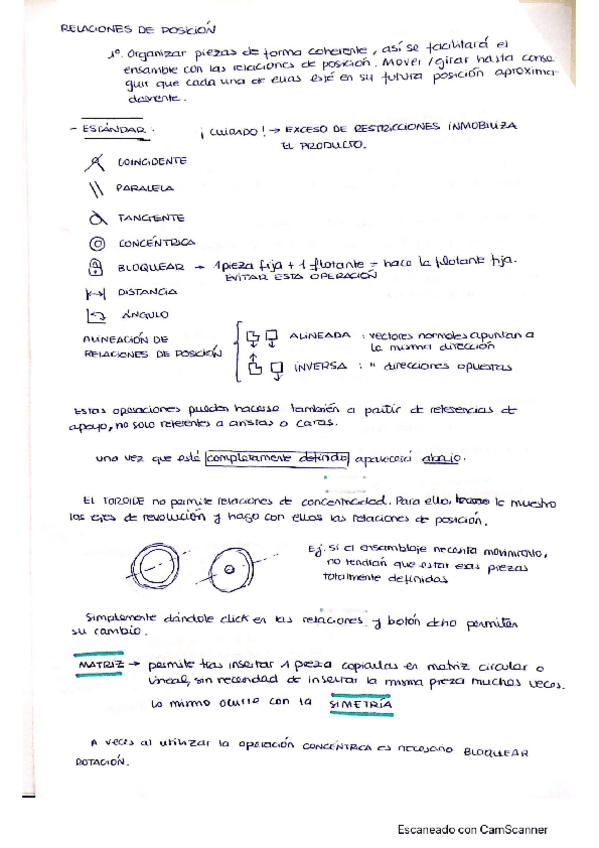 RELACIONES DE POSICIÓN
1º. Organizar piezas de forma coherente, así se facilitará el
ensamble con las relaciones de posición. Mover/girar hasta conse
guir que cada una de ellas esté en su futura posición aproxima-
damente.
- ESTÁNDAR. ¡CUIDADO! → EXCESO DE RESTRICCIONES INMOBILIZA
EL PRODUCTO.
COINCIDENTE
PARALELA
TANGENTE
CONCÉNTRICA
BLOQUEAR → 1 pieza fija + 1 flotante = hace la flotante fija.
EVITAR ESTA OPERACIÓN
DISTANCIA
ÁNGULO
ALINEACIÓN DE
RELACIONES DE POSICIÓN
ALINEADA : vectores normales apuntan a
la misma dirección
INVERSA : " direcciones opuestas
Estas operaciones pueden hacerse también a partir de referencias de
apoyo, no solo referentes a aristas o caras.
una vez que esté completamente definido aparecerá abajo.
EL TOROIDE no permite relaciones de concentricidad. Para ello, le muestro
los ejes de revolución y hago con ellos las relaciones de posición.
Ej. si el ensamblaje necesita movimiento,
no tendrían que estar esas piezas
totalmente definidas
Simplemente dándole click en las relaciones y botón dcho permiten
su cambio.
MATRIZ → permite tras insertar 1 pieza copiarlas en matriz circular o
lineal, sin necesidad de insertar la misma pieza muchas veces.
Lo mismo ocurre con la SIMETRÍA
A veces al utilizar la operación CONCÉNTRICA es necesario BLOQUEAR
ROTACIÓN.
Escaneado con CamScanner